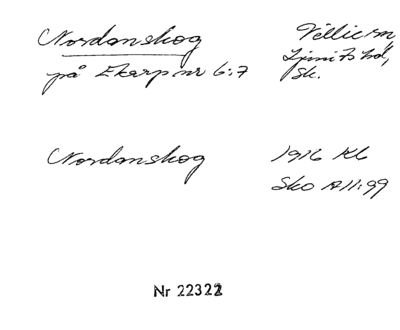 Nordanskog
Vellic sn
Ljunits hd,
på Ekarp nr 6:7
Sk.
Nordanskog
1916 Kb
Sko A11:99
Nr 22322